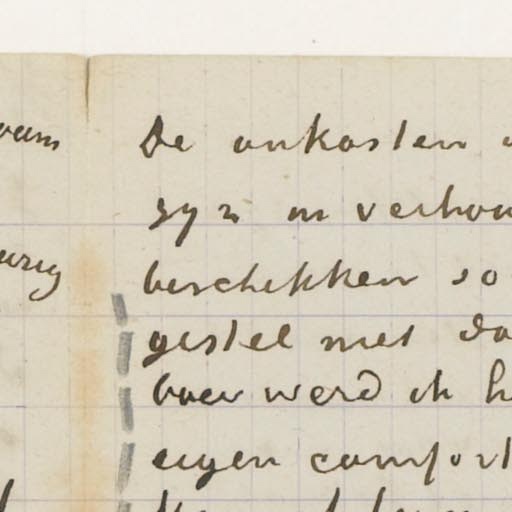 De onkosten
zyn in verhou
beschikken so
gestel met da
boer werd ik h
eigen comfort